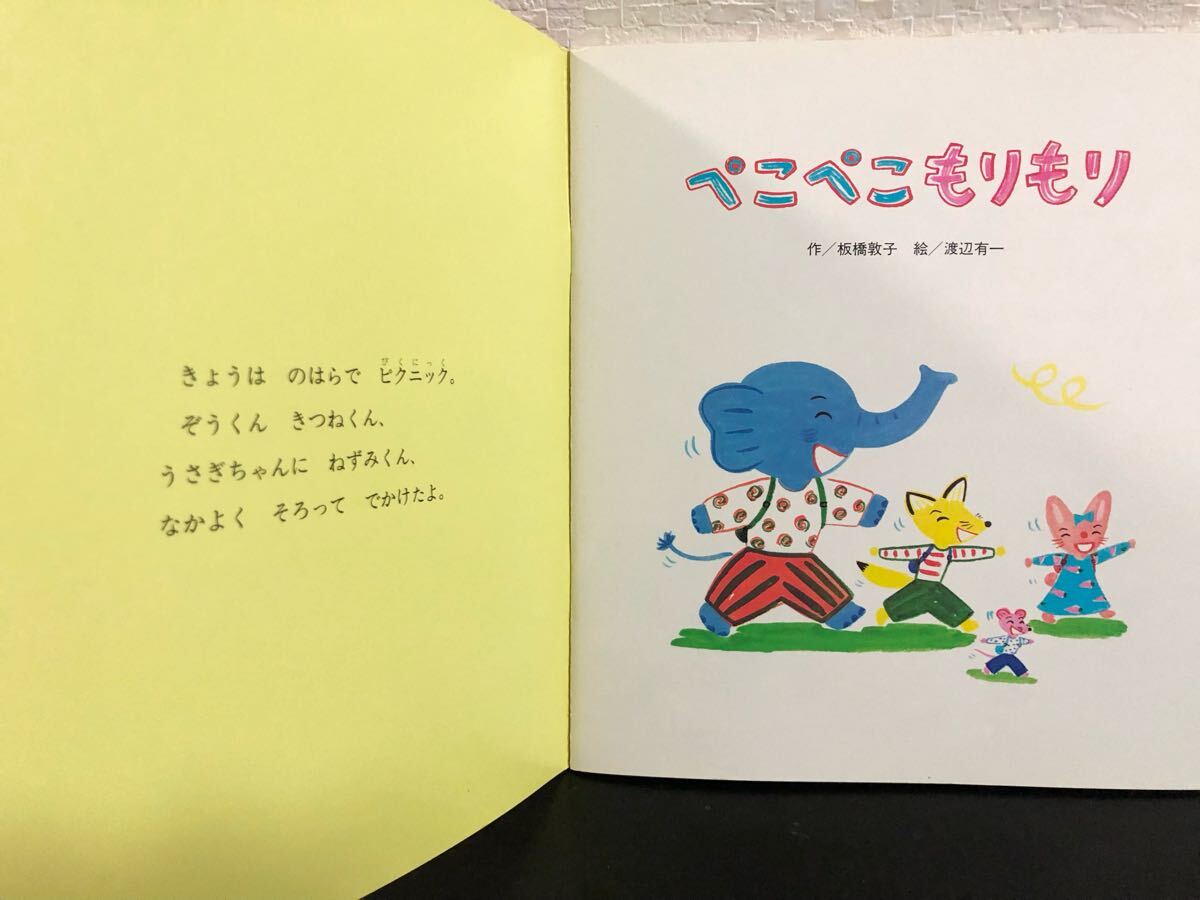 きょうは　のはらで　ピクニック。
ぴくにっく
ぞうくん　きつねくん、
うさぎちゃんに　ねずみくん、
なかよく　そろって　でかけたよ。
ぺこぺこもりもり
作／板橋敦子　絵／渡辺有一